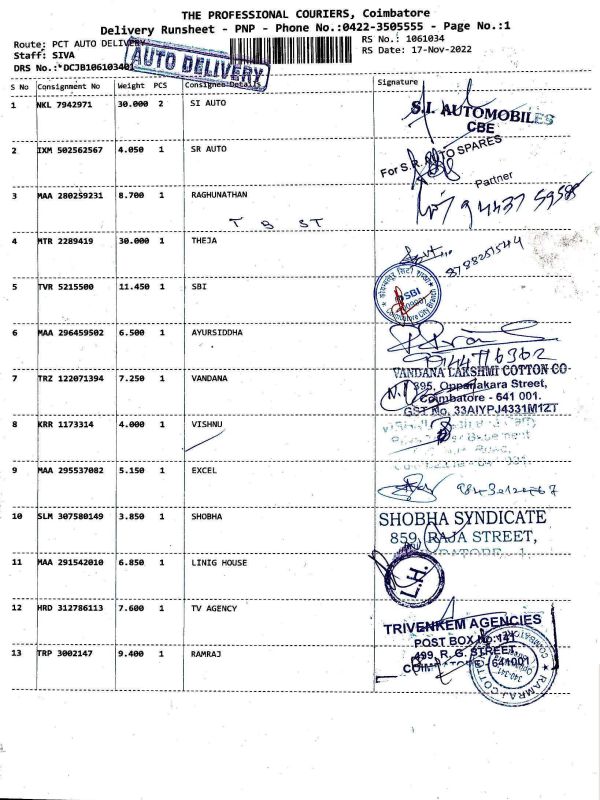 THE PROFESSIONAL COURIERS, Coimbatore
Delivery Runsheet - PNP - Phone No.:0422-3505555 - Page No.:1
Route: PCT AUTO DELIVERY
RS No.: 1061034
Staff: SIVA
RS Date: 17-Nov-2022
DRS No.:*DCJB106103401
AUTO DELIVERY
S No Consignment No Weight PCS Consignee Details Signature
1 NKL 7942971 30.000 2 SI AUTO
S.I. AUTOMOBILES
CBE
2 IXM 502562567 4.050 1 SR AUTO
For S.R. AUTO SPARES
Partner
3 MAA 280259231 8.700 1 RAGHUNATHAN
T B ST
4 MTR 2289419 30.000 1 THEJA
8798251544
5 TVR 5215500 11.450 1 SBI
SBI
Coimbatore City Branch
6 MAA 296459502 6.500 1 AYURSIDDHA
7 TRZ 122071394 7.250 1 VANDANA
VANDANA LAKSHMI COTTON CO
395, Oppanakara Street,
Coimbatore - 641 001.
GST No. 33AIYPJ4331M1ZT
8 KRR 1173314 4.000 1 VISHNU
9 MAA 295537082 5.150 1 EXCEL
10 SLM 307580149 3.850 1 SHOBHA
SHOBHA SYNDICATE
859, RAJA STREET,
11 MAA 291542010 6.850 1 LINIG HOUSE
L.H.
12 HRD 312786113 7.600 1 TV AGENCY
TRIVENKEM AGENCIES
POST BOX No:141
499, R. G. STREET,
COIMBATORE - 641001
13 TRP 3002147 9.400 1 RAMRAJ
RAMRAJ COTTON